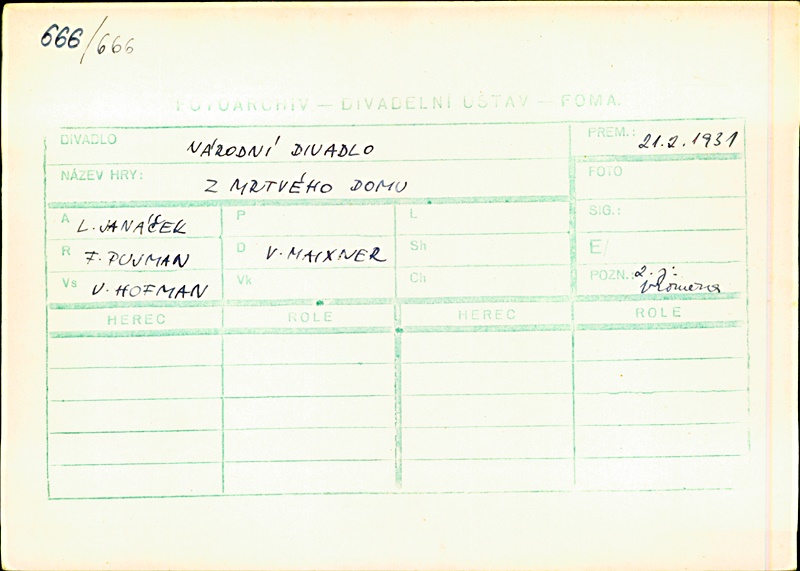 666/666
FOTOARCHIV — DIVADELNÍ ÚSTAV — FOMA.
DIVADLO NÁRODNÍ DIVADLO
PREM.: 21.2.1931
NÁZEV HRY: Z MRTVÉHO DOMU
FOTO
A L. JANÁČEK
P
L
SIG.:
R F. PUJMAN
D V. MAIXNER
Sh
E/
Vs V. HOFMAN
Vk
Ch
POZN.: 2. j.
HEREC ROLE HEREC ROLE